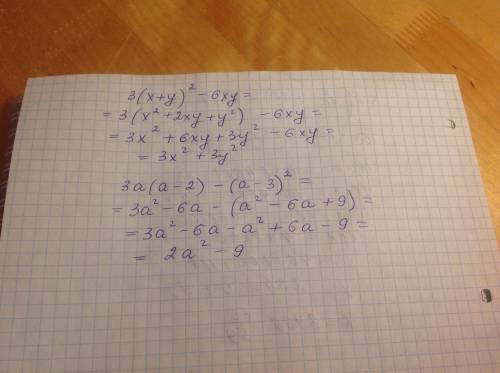 3(x+y)² - 6xy =
= 3(x² + 2xy + y²) - 6xy =
= 3x² + 6xy + 3y² - 6xy =
= 3x² + 3y²
3a(a-2) - (a-3)² =
= 3a² - 6a - (a² - 6a + 9) =
= 3a² - 6a - a² + 6a - 9 =
= 2a² - 9